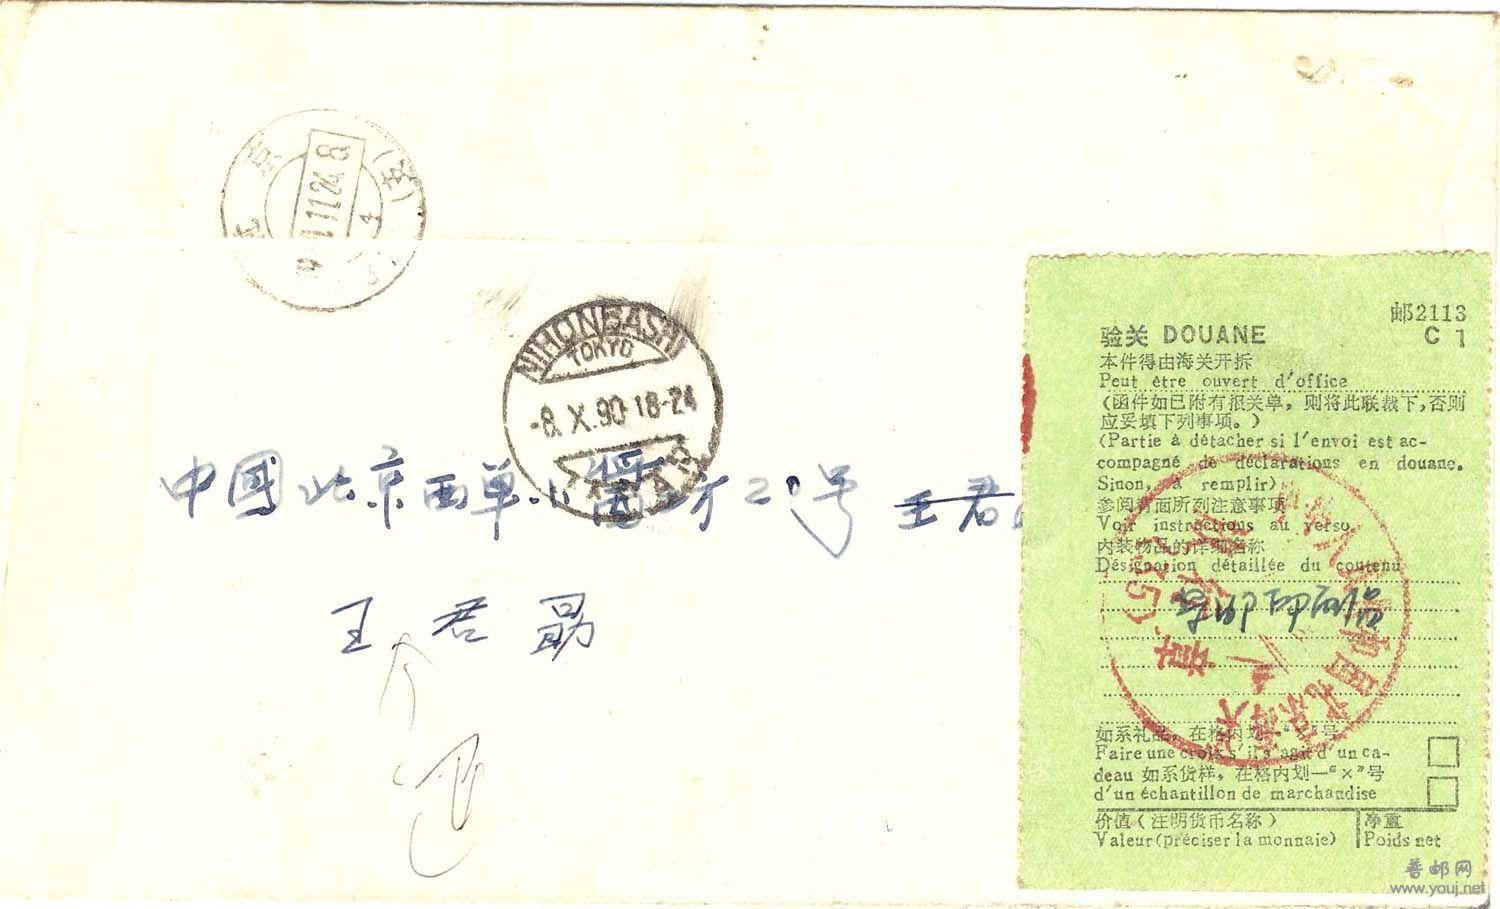 京
(支)
11.24.8
NIHONBASHI
TOKYO
-8.X.90.18-24
JAPAN
中國北京西單小
号 王君
王君勗
邮2113
验关 DOUANE C 1
本件得由海关开拆
Peut être ouvert d'office
(函件如已附有报关单, 则将此联裁下,否则
应妥填下列事项。)
(Partie à détacher si l'envoi est ac-
compagné de déclarations en douane.
Sinon, à remplir)
参阅背面所列注意事项
Voir instructions au verso
内装物品的详细名称
Désignation détaillée du contenu
中华人民共和国北京海关
(35)
如系礼品, 在格内划一“×”号
Faire une croix s'il s'agit d'un ca-
deau 如系货样, 在格内划一“×”号
d'un échantillon de marchandise
价值(注明货币名称) 净重
Valeur(préciser la monnaie) Poids net
普邮网
www.youj.net